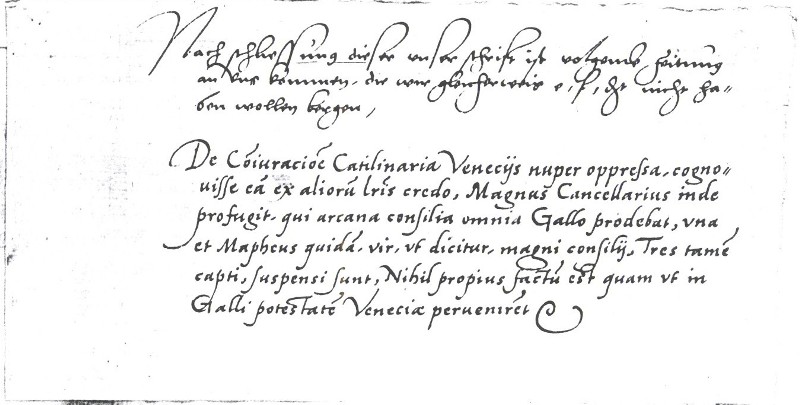 Nach schliessung dieser unser schrifft ist volgende Zeitung
an uns kommen, die wir gleicherweis e, f, d(t) nicht ha=
ben wollen bergen,
De Cōiuratiōe Catilinaria Veneciis nuper oppressa, cogno=
uisse eā ex alioru̅ lr̅is credo, Magnus Cancellarius inde
profugit, qui arcana consilia omnia Gallo prodebat, vna
et Mapheus quidā, vir, vt dicitur, magni consilij, Tres tamē
capti, suspensi sunt, Nihil propius factū est quam vt in
Galli potestatē Veneciæ peruenirēt